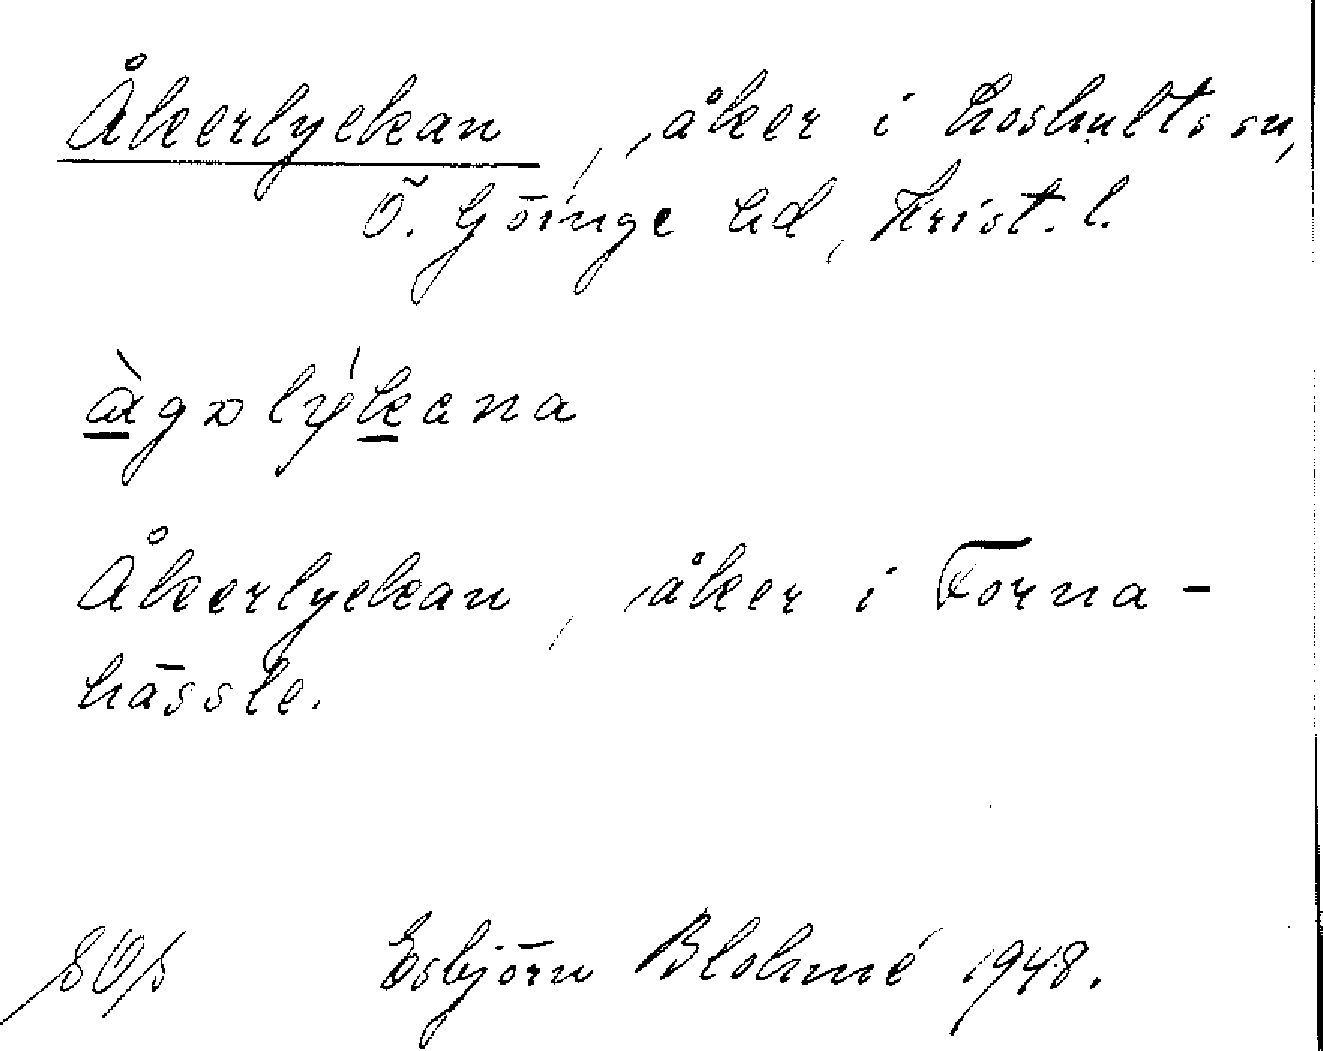 Åkerlyckan, åker i Loshults sn,
Ö. Göinge hd, Krist. l.
àgɔlýkana
Åkerlyckan, åker i Torna-
hässle.
Esbjörn Blohmé 1948.